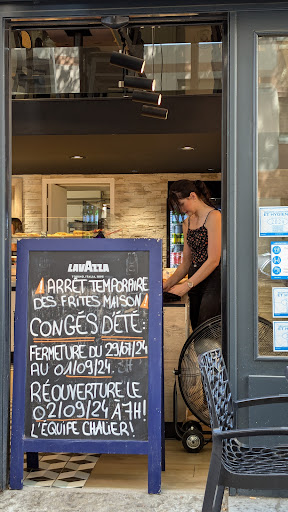 LAVAZZA
TORINO, ITALIA, 1895
ARRÊT TEMPORAIRE
DES FRITES MAISON
CONGÉS D'ÉTÉ:
FERMETURE DU 29/07/24
AU 01/09/24.
RÉOUVERTURE LE
02/09/24 À 7H!
L'ÉQUIPE CHALIER!